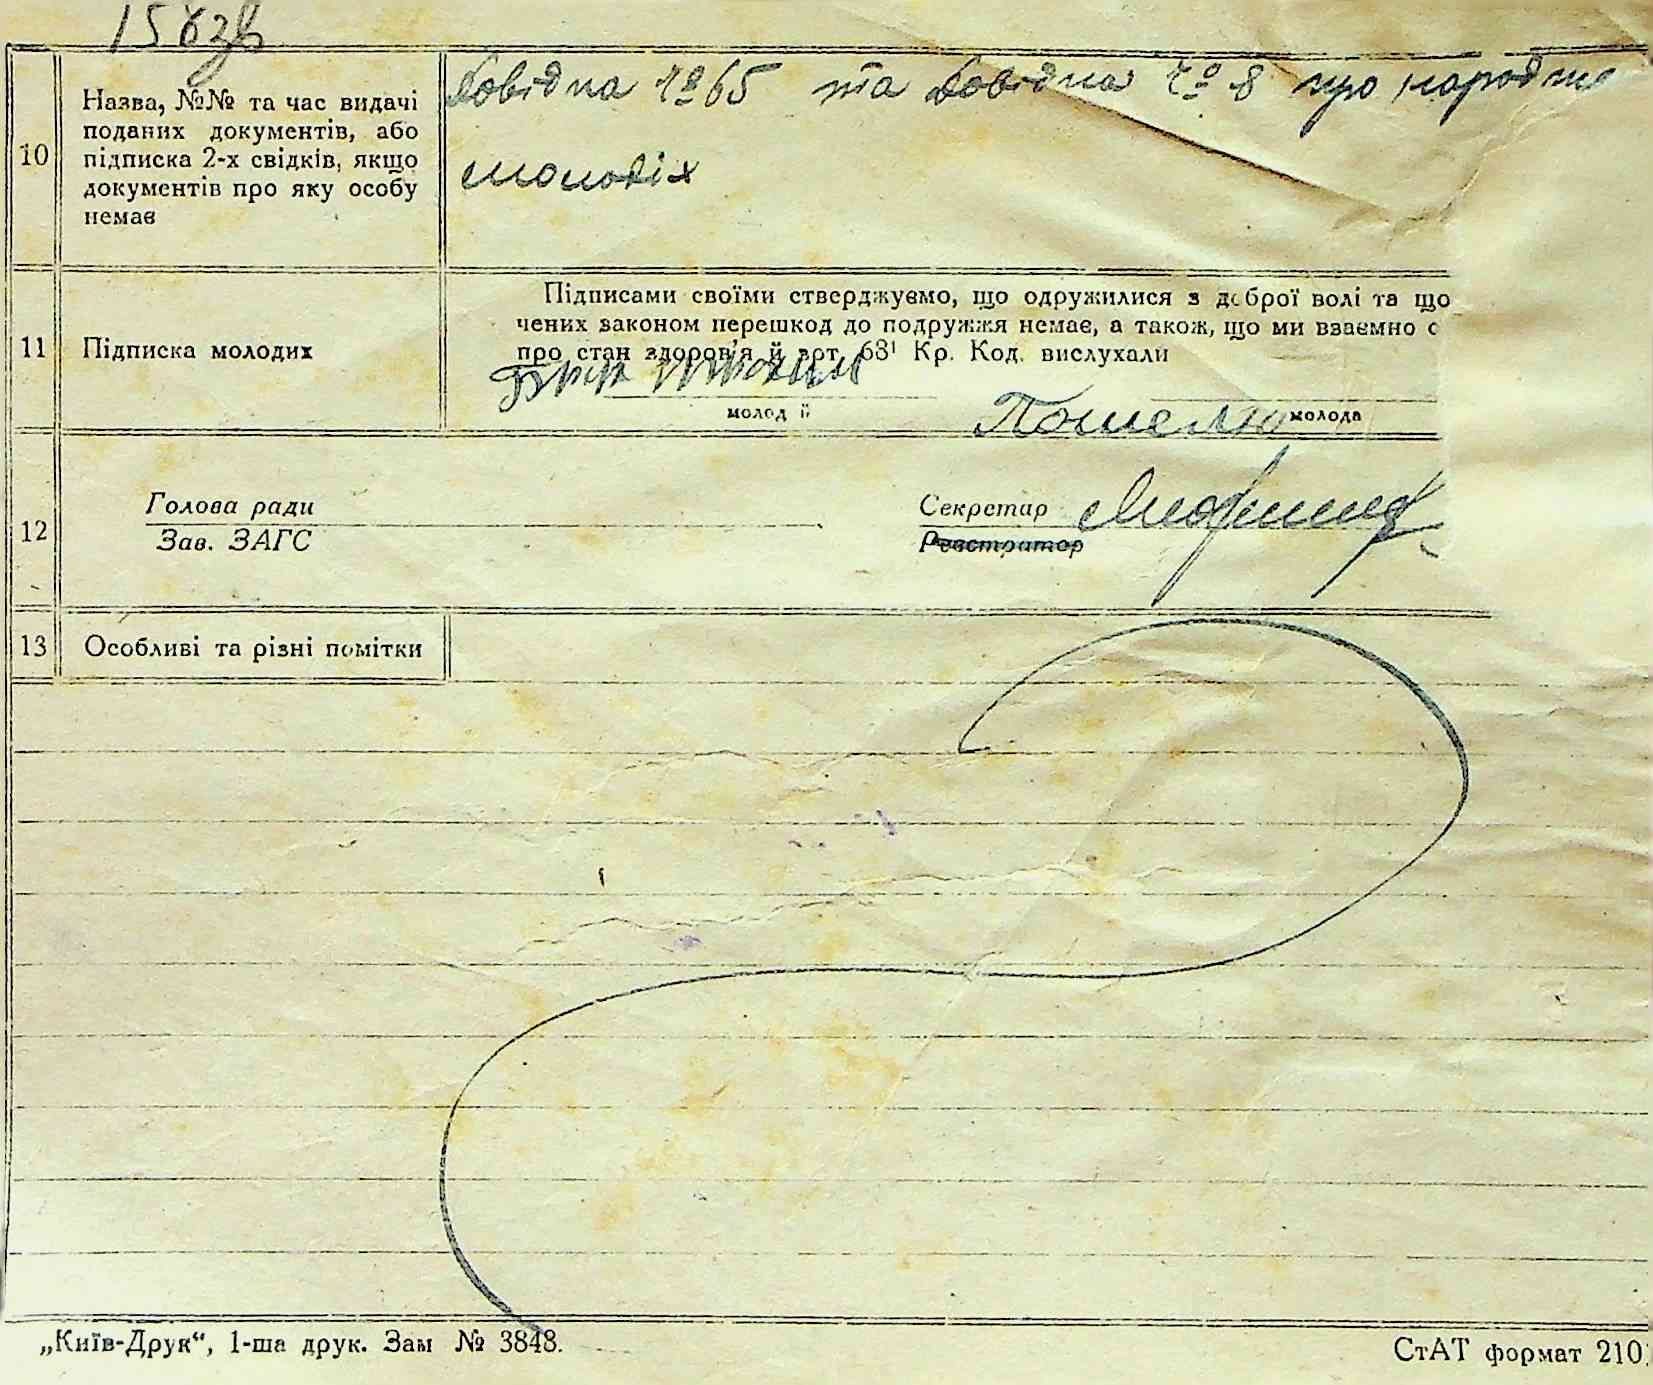 Довідка № 65 та Довідка № 8 про народже
10
Назва, №№ та час видачі
поданих документів, або
підписка 2-х свідків, якщо
документів про яку особу
немає
молодіх
11
Підписка молодих
Підписами своїми стверджуємо, що одружилися з доброї волі та що
чених законом перешкод до подружжя немає, а також, що ми взаємно о
про стан здоров'я й арт. 68¹ Кр. Код. вислухали
молодий
молода
12
Голова ради
Зав. ЗАГС
Секретар
Реєстратор
13
Особливі та різні помітки
„Київ-Друк“, 1-ша друк. Зам № 3848.
СтАТ формат 210